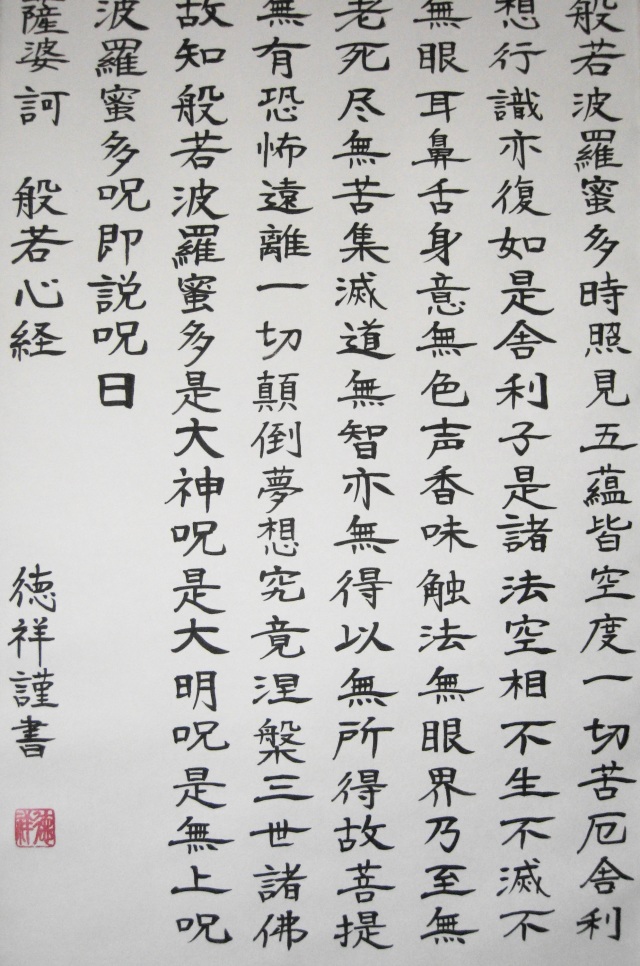 般若波羅蜜多時照見五蘊皆空度一切苦厄舎利
想行識亦復如是舎利子是諸法空相不生不滅不
無眼耳鼻舌身意無色声香味触法無眼界乃至無
老死尽無苦集滅道無智亦無得以無所得故菩提
無有恐怖遠離一切顛倒夢想究竟涅槃三世諸佛
故知般若波羅蜜多是大神呪是大明呪是無上呪
波羅蜜多呪即説呪日
薩婆訶 般若心経 徳祥謹書